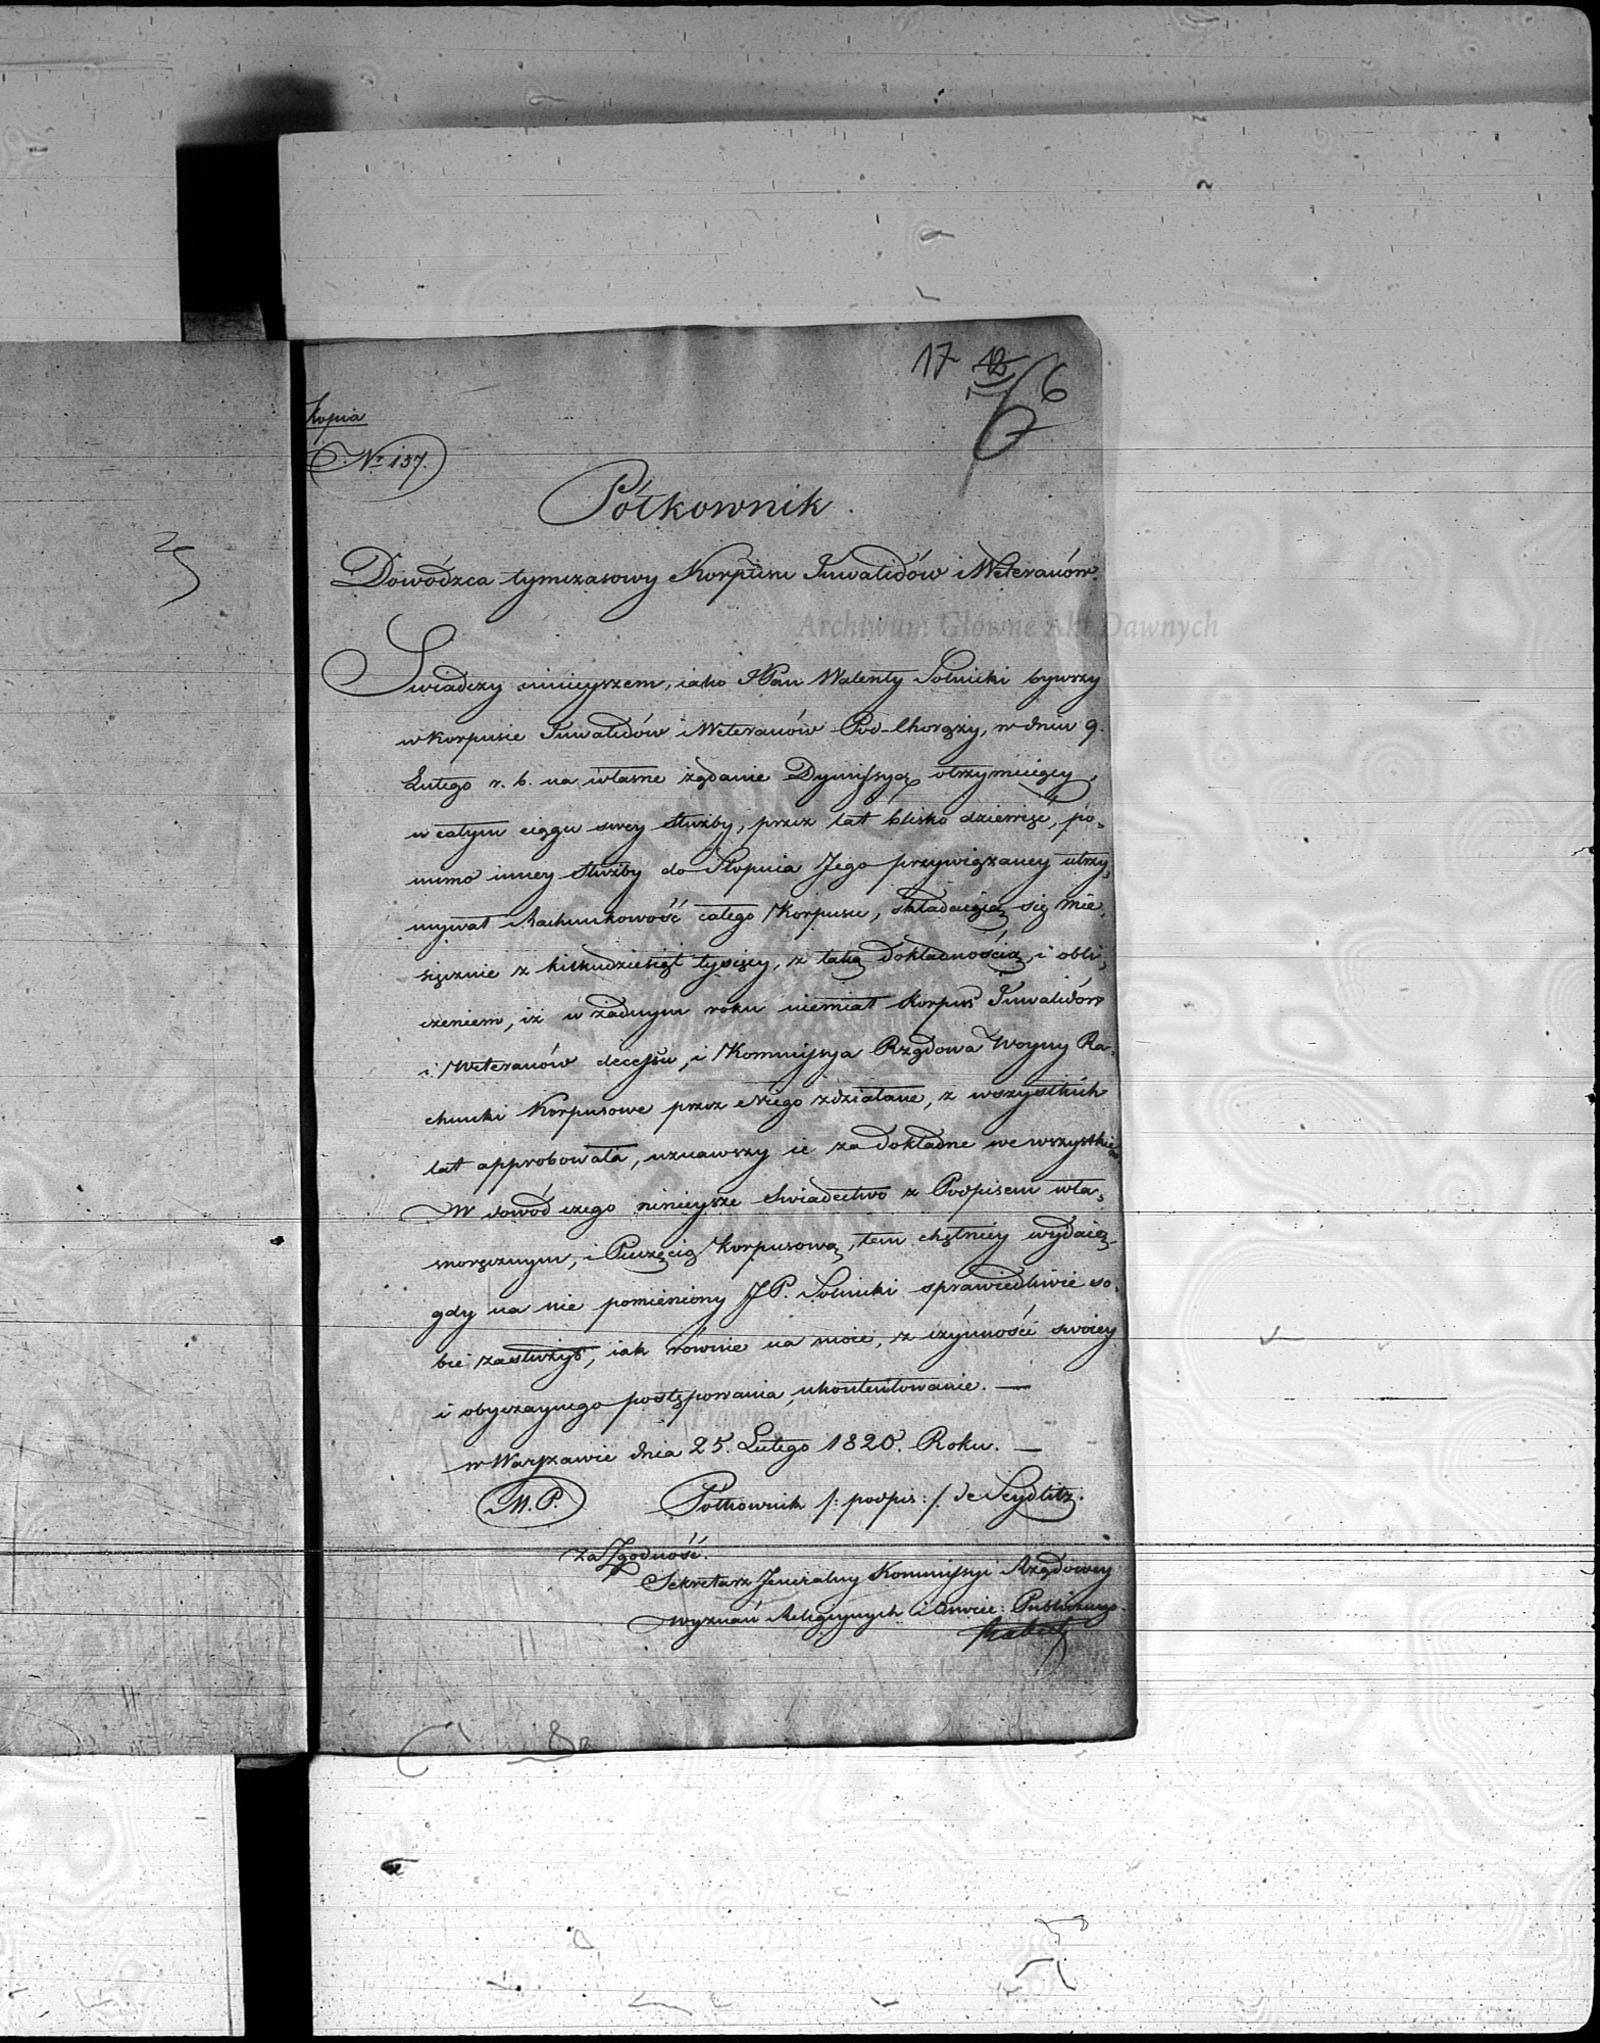 17 12 6
6
Kopia
Nr 137.
Półkownik.
Dowódzca tymczasowy Korpusu Inwalidów i Weteranów.
Archiwum Główne Akt Dawnych
Swiadczy ninieyszem, iako JPan Walenty Solnicki bywszy
w Korpusie Inwalidów i Weteranów Pod-Chorąży, w dniu 9.
Lutego r. b. na własne żądanie Dymissyą otrzymuiący,
w całym ciągu swey służby, przez lat blisko dziewięć, po„
mimo inney służby do Stopnia Jego przywiązaney utrzy„
mywał Rachunkowość całego Korpusu, składaiącą się mie„
sięcznie z kilkudziesiąt tysięcy, z taką dokładnością, i obli„
czeniem, iż w żadnym roku niemiał Korpus Inwalidów
i Weteranów decessu, i Kommissya Rządowa Woyny Ra„
chunki Korpusowe przez Niego zdziałane, z wszystkich
lat approbowała, uznawszy ie za dokładne we wszystkiem
W dowód czego ninieysze Swiadectwo z Podpisem wła„
snoręcznym, i Pieczęcią Korpusową, tem chętniey wydaię,
gdy na nie pomieniony JP. Solnicki sprawiedliwie so„
bie zasłużył, iak równie na moie, z czynności swoiey
i obyczaynego postępowania, ukontentowanie. —
Archiwum Główne Akt Dawnych
w Warszawie dnia 25. Lutego 1820. Roku. —
M. P. Półkownik /: podpis :/ de Seydlitz.
Za Zgodność.
Sekretarz Jeneralny Kommissyi Rządowey
Wyznań Religiynych i Oświec: Publicznego.